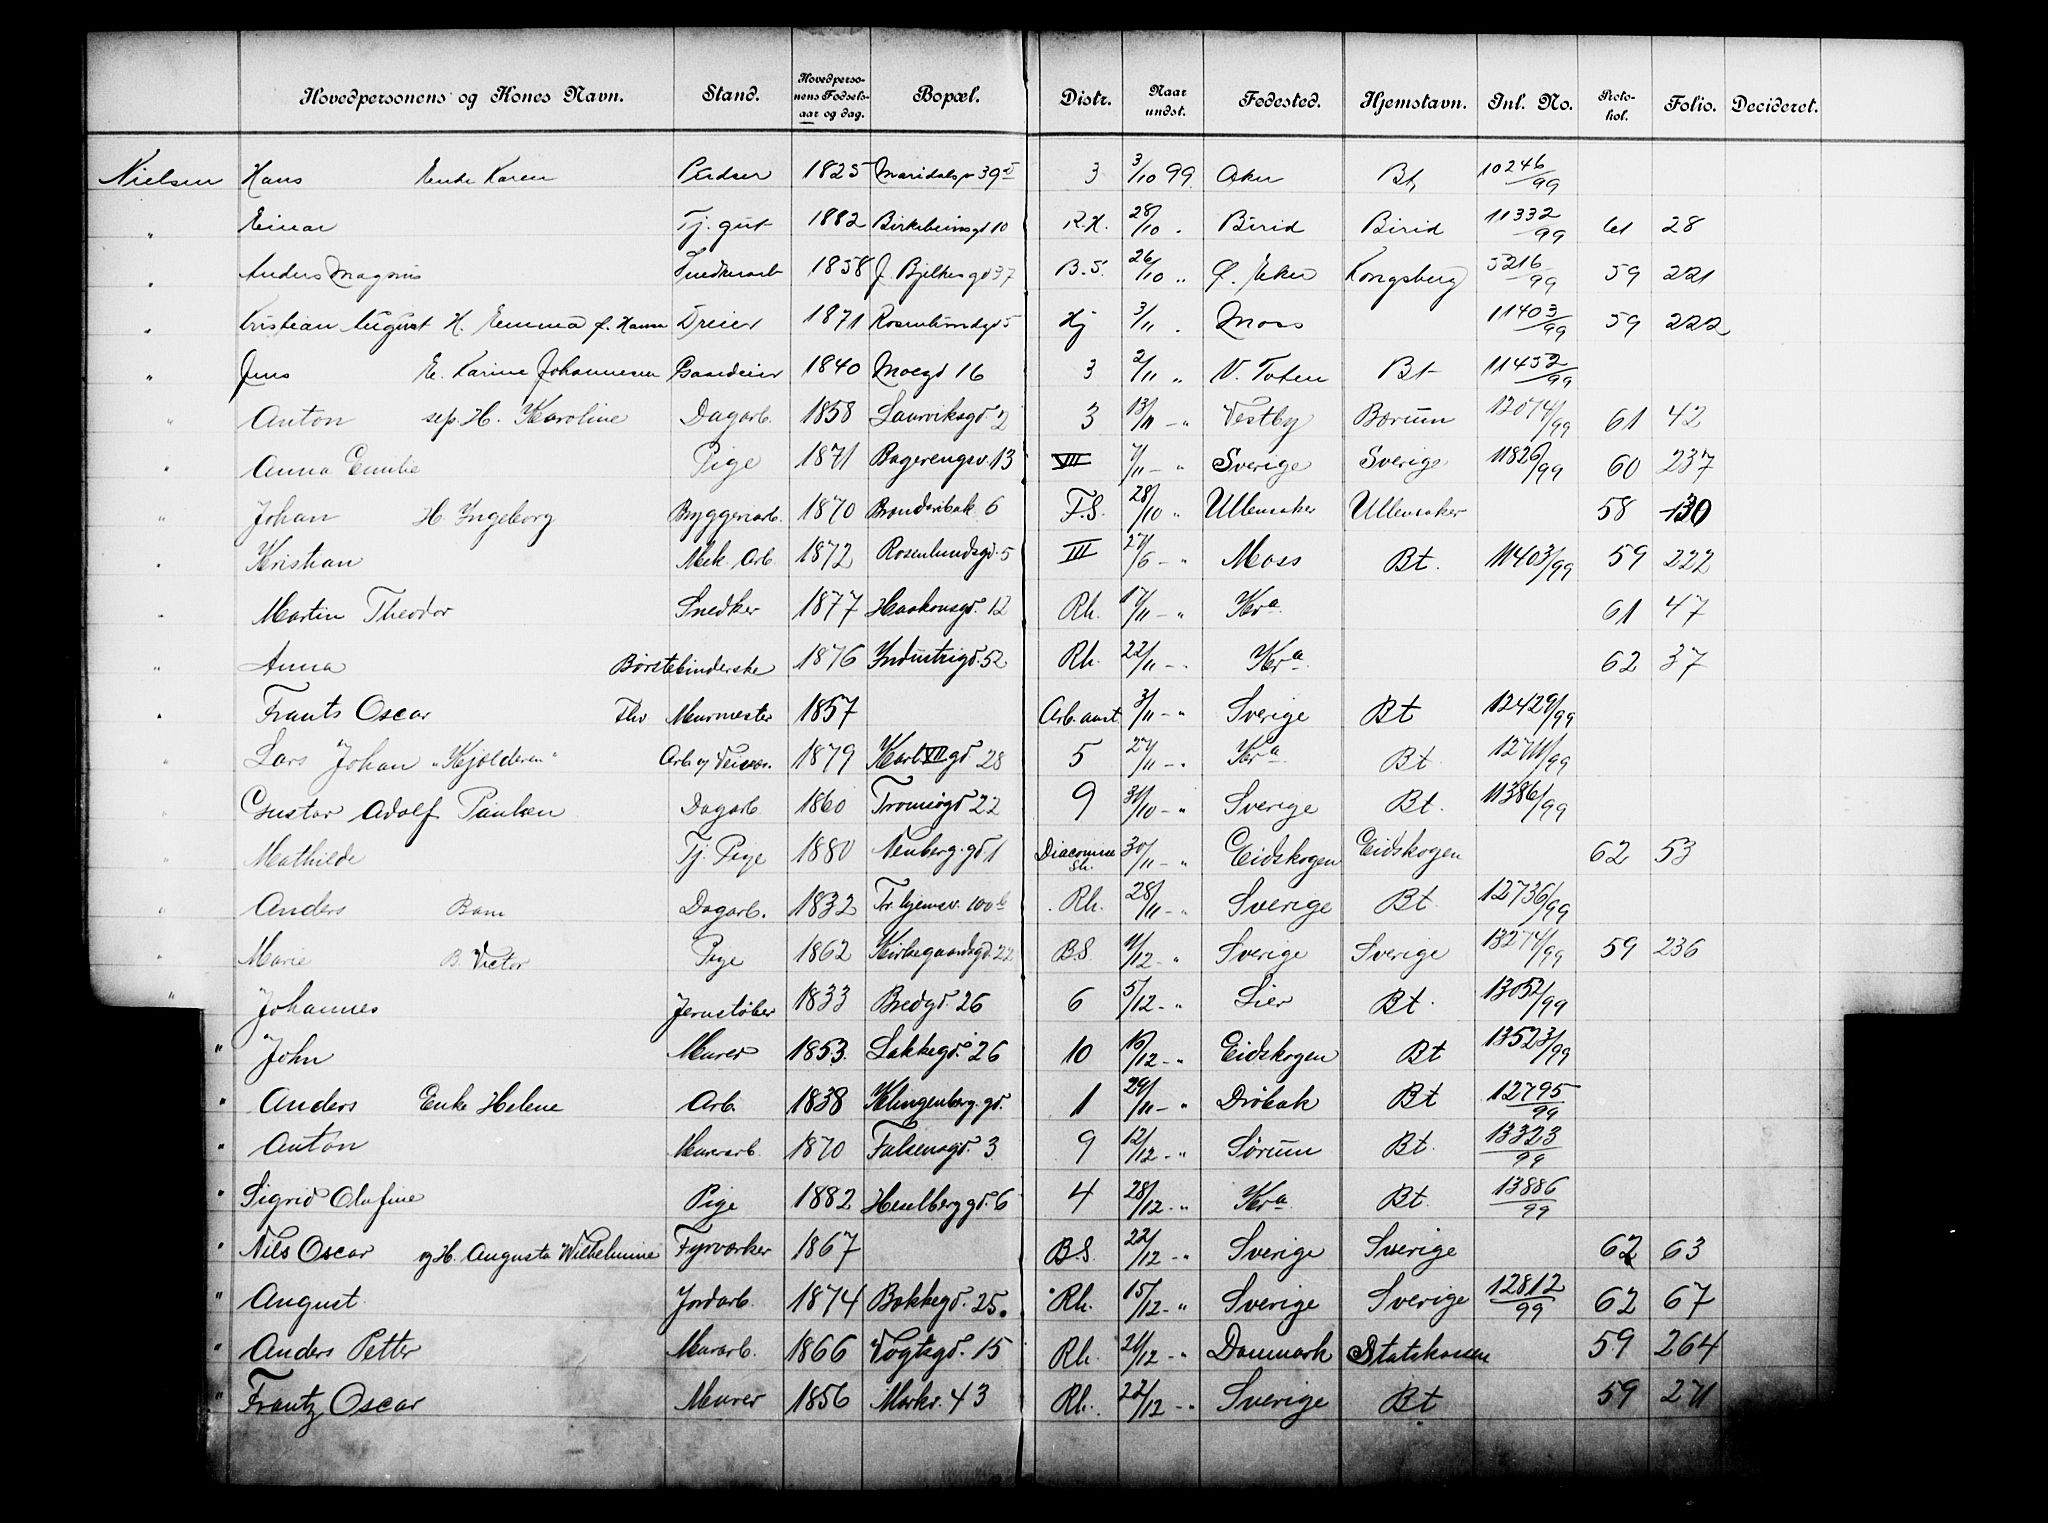 Hovedpersonens og Kones Navn. Stand. Hovedpersonens Fødselsaar og dag. Bopæl. Distr. Naar undst. Fødested. Hjemstavn. Inl. No. Protokol. Folio. Decideret.
Nielsen Hans Enke Karen Pudser 1825 Maridalsv 39 3 3/10 99. Aker Bt, 10246/99
" Einar Tj. gut 1882 Birkebeinsgd 10 R.H. 28/10 " Birid Birid 11332/99 61 28
" Anders Magnus Snedkerarb 1858 J. Bjelkesgd 37 B.S. 26/10 " Ø. Eker Kongsberg 5216/99 59 221
" Kristian August H. Emma f. Hansen Dreier 1871 Rosenlundgd 5 Hj 3/11 " Moss 11403/99 59 222
" Jens E. Karine Johannesen Gaardeier 1840 Moegd 16 3 2/11 " V. Toten Bt 11452/99
" Anton sep. H. Karoline Dagarb. 1858 Laurviksgd. 2 3 13/11 - " Vestby Bærum 12074/99 61 42
" Anna Emilie Pige 1871 Bagerengsv. 13 VIII 7/11 - " Sverige Sverige 11826/99 60 237
" Johan H. Ingeborg Bryggeriarb. 1870 Brinderibak. 6 F.S. 28/10 " Ullensaker Ullensaker 58 130
" Kristian Mek. Arb. 1872 Rosenlundsgd. 5 III 27/6 - " Moss Bt. 11403/99 59 222
" Martin Theodor Snedker 1877 Haakonsgd. 12 Rh. 17/11 - " Kra 61 47
" Anna Børstebinderske 1876 Industrigd. 52 Rh. 22/11 - " Kra 62 37
" Frants Oscar Fhv Murmester 1857 Arb. anst. 3/11 - " Sverige Bt 12429/99
" Lars Johan "Kjølderen" Arb og Veiv. 1879 Karl VII gd 28 5 27/11 - " Kra Bt. 12711/99
" Gustav Adolf Paulsen Dagarb. 1860 Tromsøgd 22 9 31/10 - " Sverige Bt. 11386/99
" Mathilde Tj. Pige 1880 Neuberg. gd 1 Diaconisse Sh. 30/11 - " Eidskogen Eidskogen 62 53
" Anders Barn Dagarb. 1832 Tr. hjemsv. 100 b Rh. 28/11 - " Sverige Bt. 12736/99
" Marie B. Victor Pige 1862 Kirkegaardsgd. 22 B.S. 9/12 - " Sverige Sverige 13274/99 59 236
" Johannes Jernstøber 1833 Bredgd. 26 6 5/12 - " Lier Bt. 13052/99
" John Murer 1853. Lakkegd. 26 10 16/12 - " Eidskogen Bt 13523/99
" Anders Enke Helene Arb. 1838 Klingenberg. gd. 1 29/11 - " Drøbak Bt 12795/99
" Anton Murarb. 1870 Falsensgd. 3 9 12/12 - " Sørum Bt. 13323/99
" Sigrid Olafine Pige 1882 Heselberg gd. 6 4 28/12 - " Kra Bt. 13886/99
" Nils Oscar og H. Augusta Wilhelmine Fyrværker 1867 B.S. 22/12 - " Sverige Sverige 62 63
" August. Jordarb. 1874 Bakkegd. 25. Rh. 15/12 - " Sverige Sverige 12812/99 62 67
" Anders Petter Murarb. 1866 Vogtsgd. 15 Rh. 21/12 - " Danmark Statskassen 59 264
" Frantz Oscar Murer 1856 Markv. 43 Rh. 22/12 - " Sverige Bt 59 271